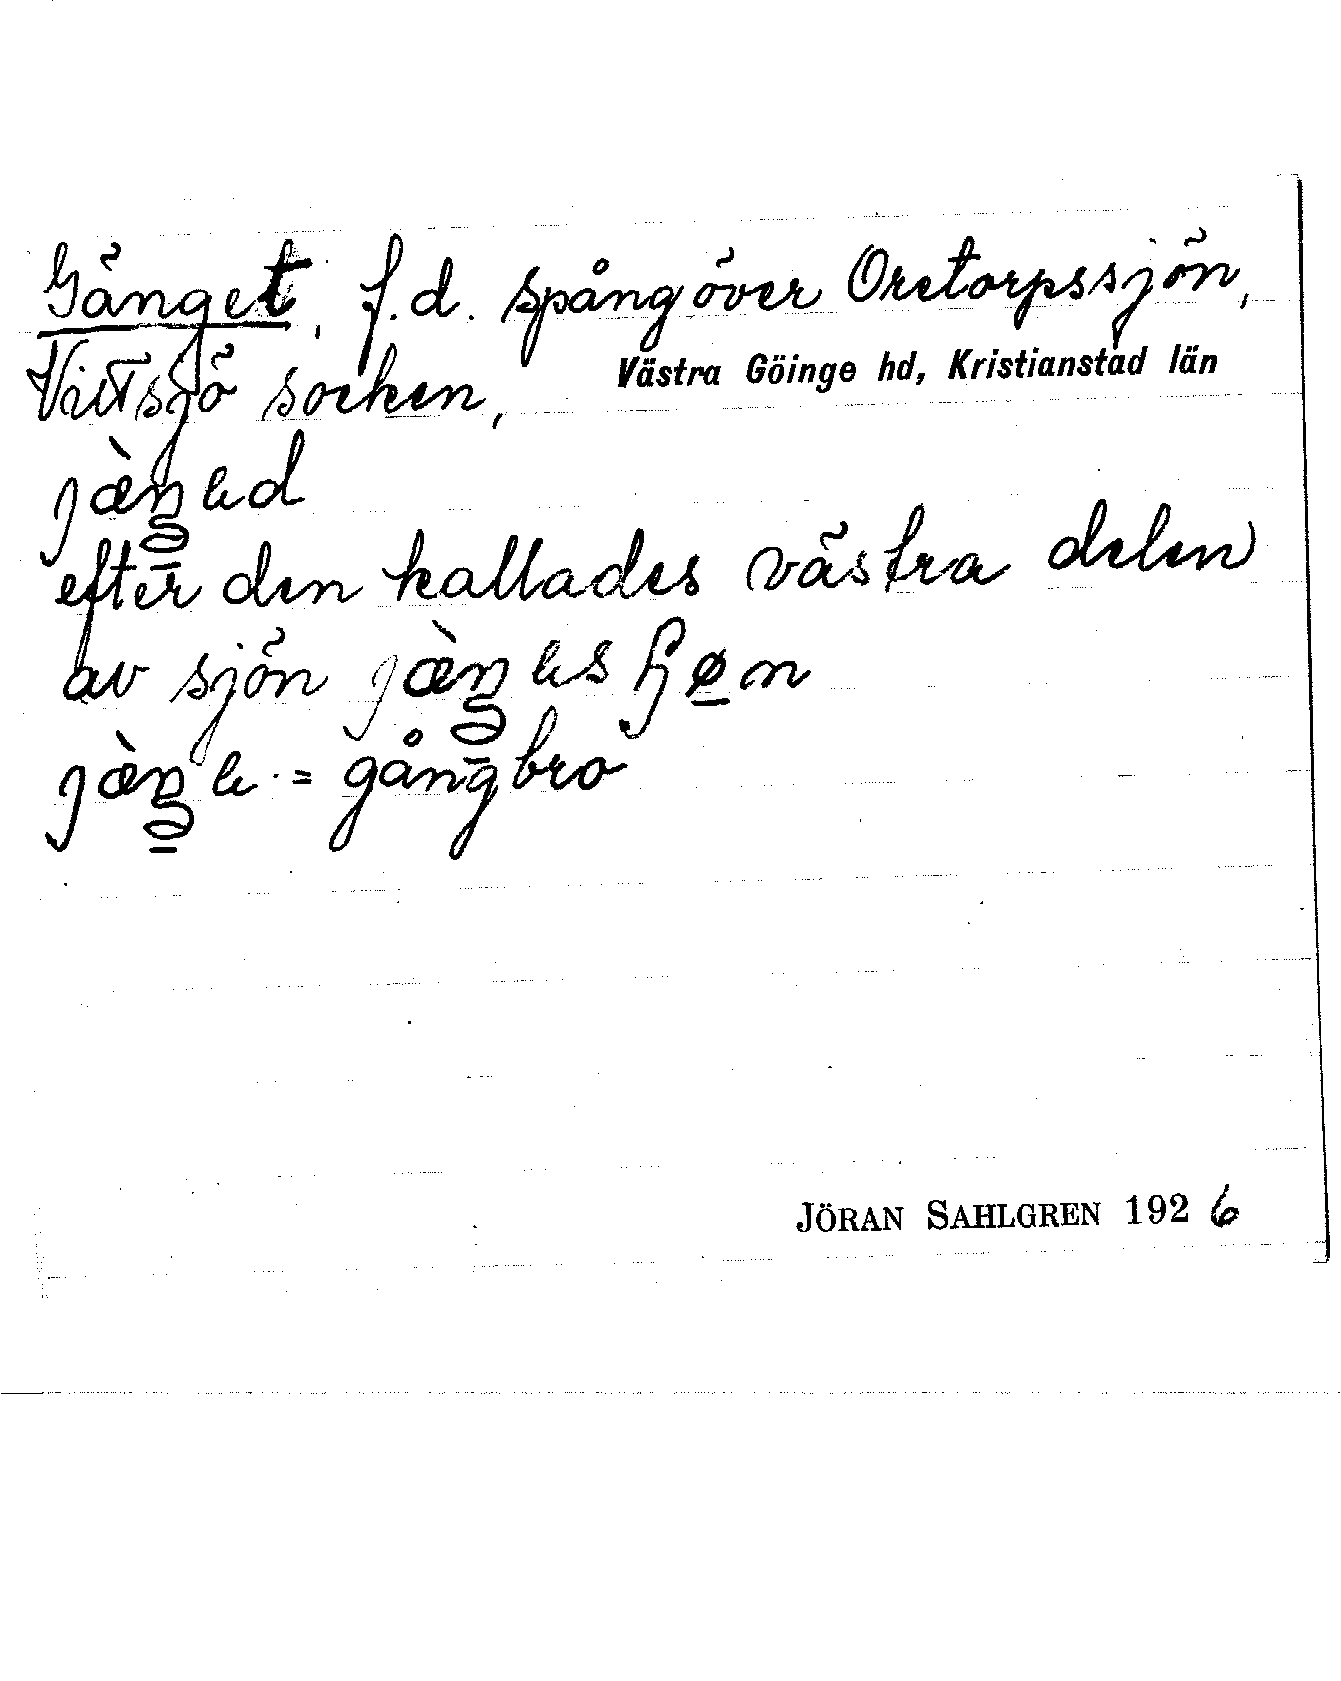 Gänget, f.d. spång över Oretorpssjön,
Vittsjö socken, Västra Göinge hd, Kristianstad län
jæ̀ŋəd
efter den kallades västra delen
av sjön jæ̀ŋəsɧøn
jæ̀ŋə = gångbro
JÖRAN SAHLGREN 1926